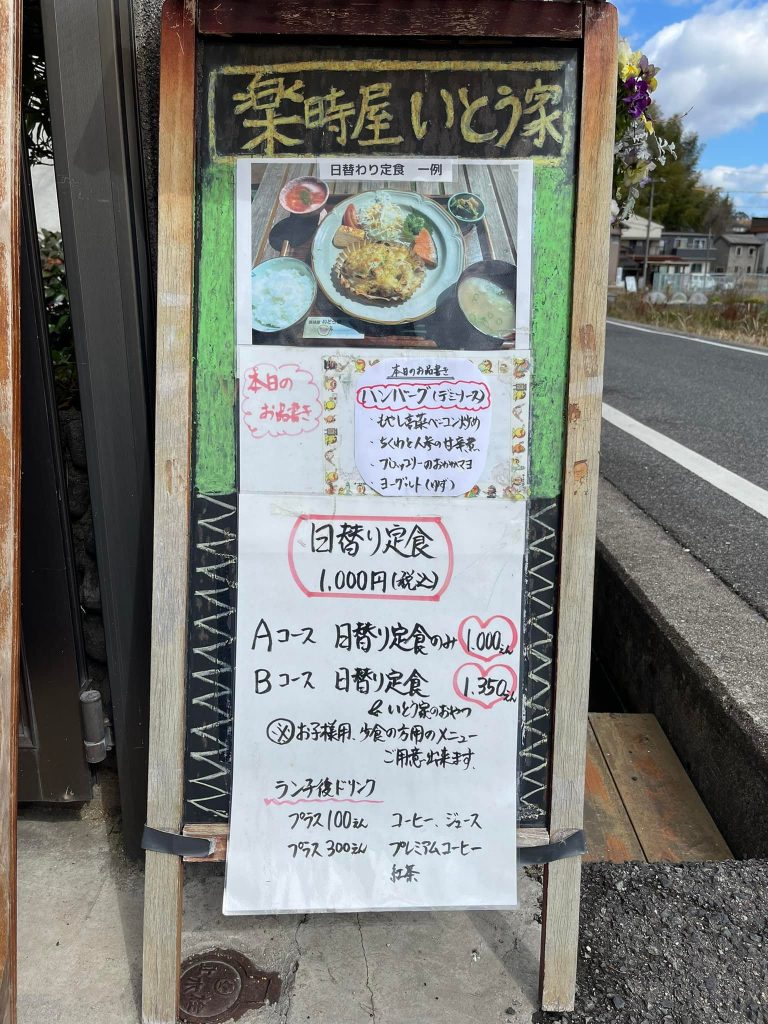 楽時屋 いとう家
日替わり定食 一例
本日の
お品書き
本日のお品書き
ハンバーグ(デミソース)
・もやし青菜ベーコン炒め
・ちくわと人参の甘辛煮
・ブロッコリーのおかかマヨ
・ヨーグルト(ゆず)
日替り定食
1,000円(税込)
Aコース 日替り定食のみ 1.000えん
Bコース 日替り定食 1.350えん
&いとう家のおやつ
※お子様用、少食の方用のメニュー
ご用意出来ます。
ランチ後ドリンク
プラス100えん コーヒー、ジュース
プラス300えん プレミアムコーヒー
紅茶